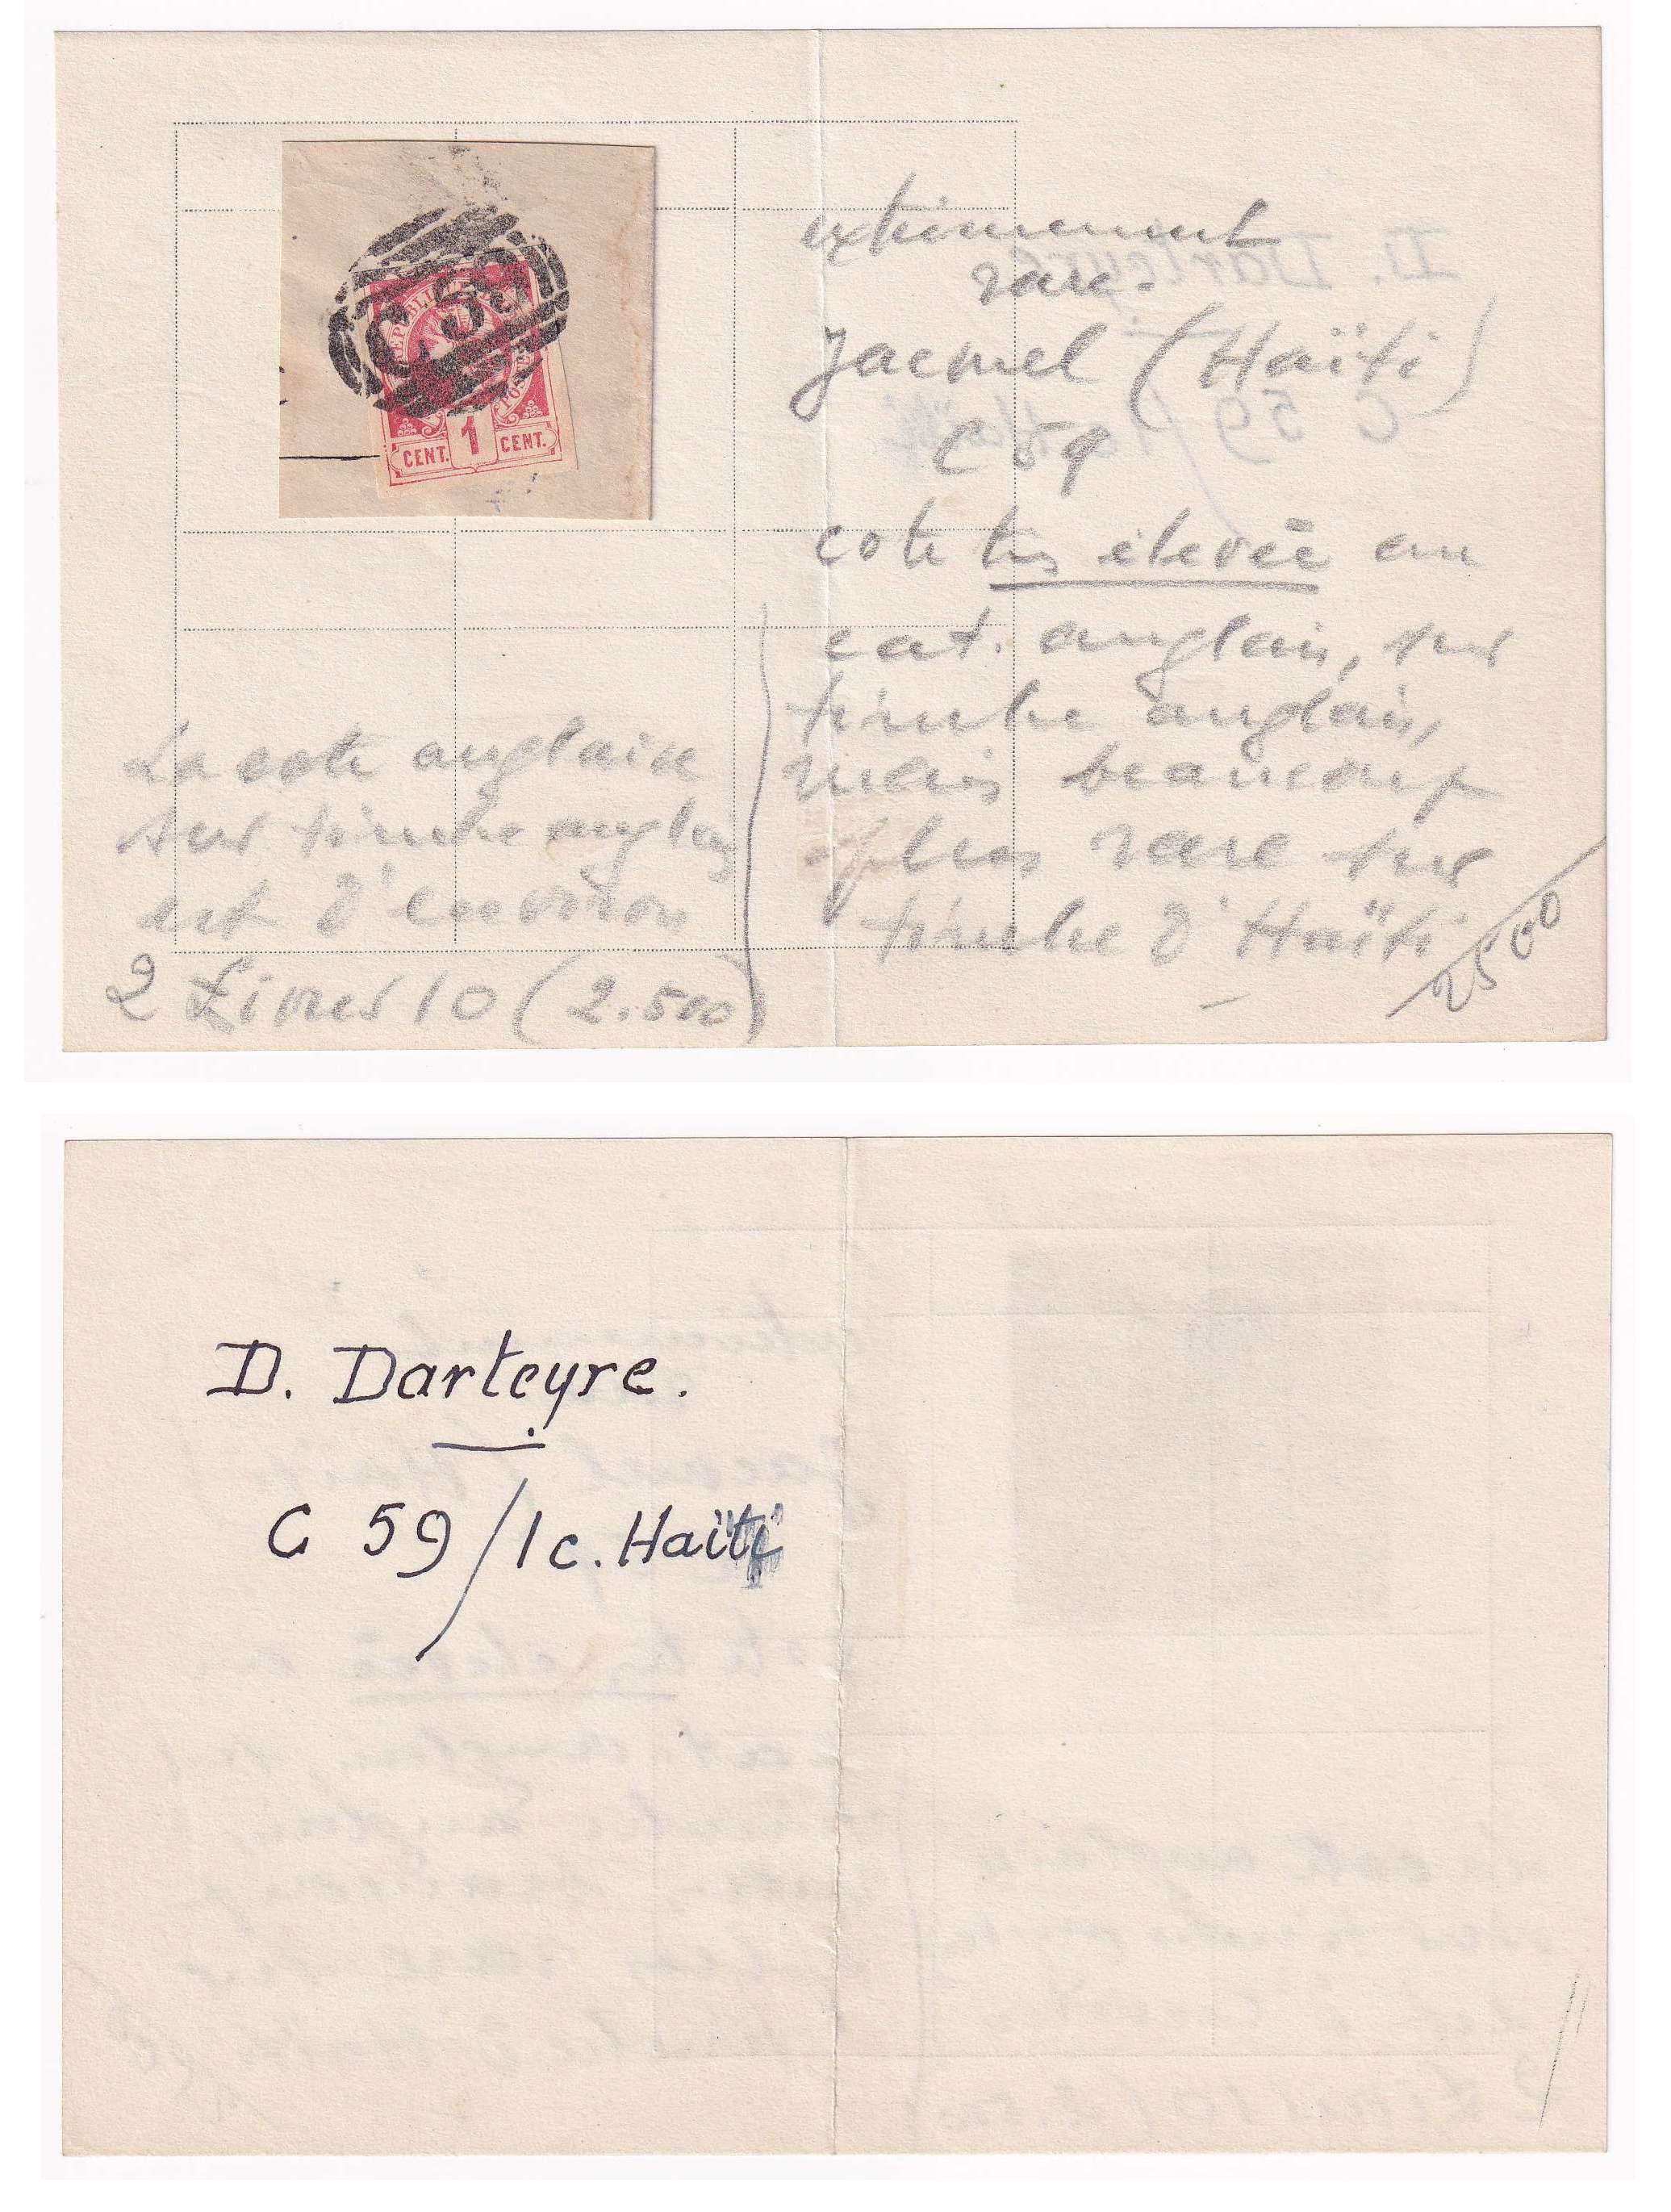 C 59
REPUBLI
1
CENT. CENT.
extrêmement
rare.
Jacmel (Haïti)
C 59
cote très élevée au
cat. anglais, sur
timbre anglais,
mais beaucoup
plus rare sur
timbre d'Haïti
2500
La cote anglaise
sur timbre anglais
est d'environ
2 Livres 10 (2.500)
D. Darteyre.
C 59/1c. Haïti